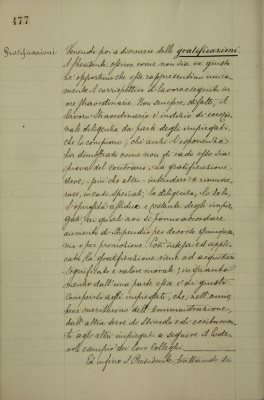 477
Gratificazioni
Venendo poi a discorrere delle gratificazioni,
il Presidente osserva come non sia nè giusto
nè opportuno che esse rappresentino unica-
mente il corrispettivo di lavoro eseguito in
ore straordinarie. Non sempre, difatti, il
lavoro straordinario è indizio di eccezio-
nale diligenza da parte degli impiegati,
che lo compiono; chè anzi l'esperienza
ha dimostrato come non di rado esso sia
prova del contrario. La gratificazione
deve, più che altro, intendere a rimune-
rare, in casi speciali, la diligenza, lo zelo,
l'operosità assidua e costante degli impie-
gati ai quali non si possono accordare
aumenti di stipendio per decorso quinquen-
nio o per promozione. Così intesa ed appli-
cata, la gratificazione viene ad acquistare
significato e valore morale; inquanto
mentre dall'una parte essa è di giusto
compenso agli impiegati, che, nell'anno,
bene meritarono dell'Amministrazione,
dall'altra serve di stimolo e di eccitamen-
to agli altri impiegati a seguire il lode-
vole esempio dei loro Colleghi.
Ed infine il Presidente, trattando